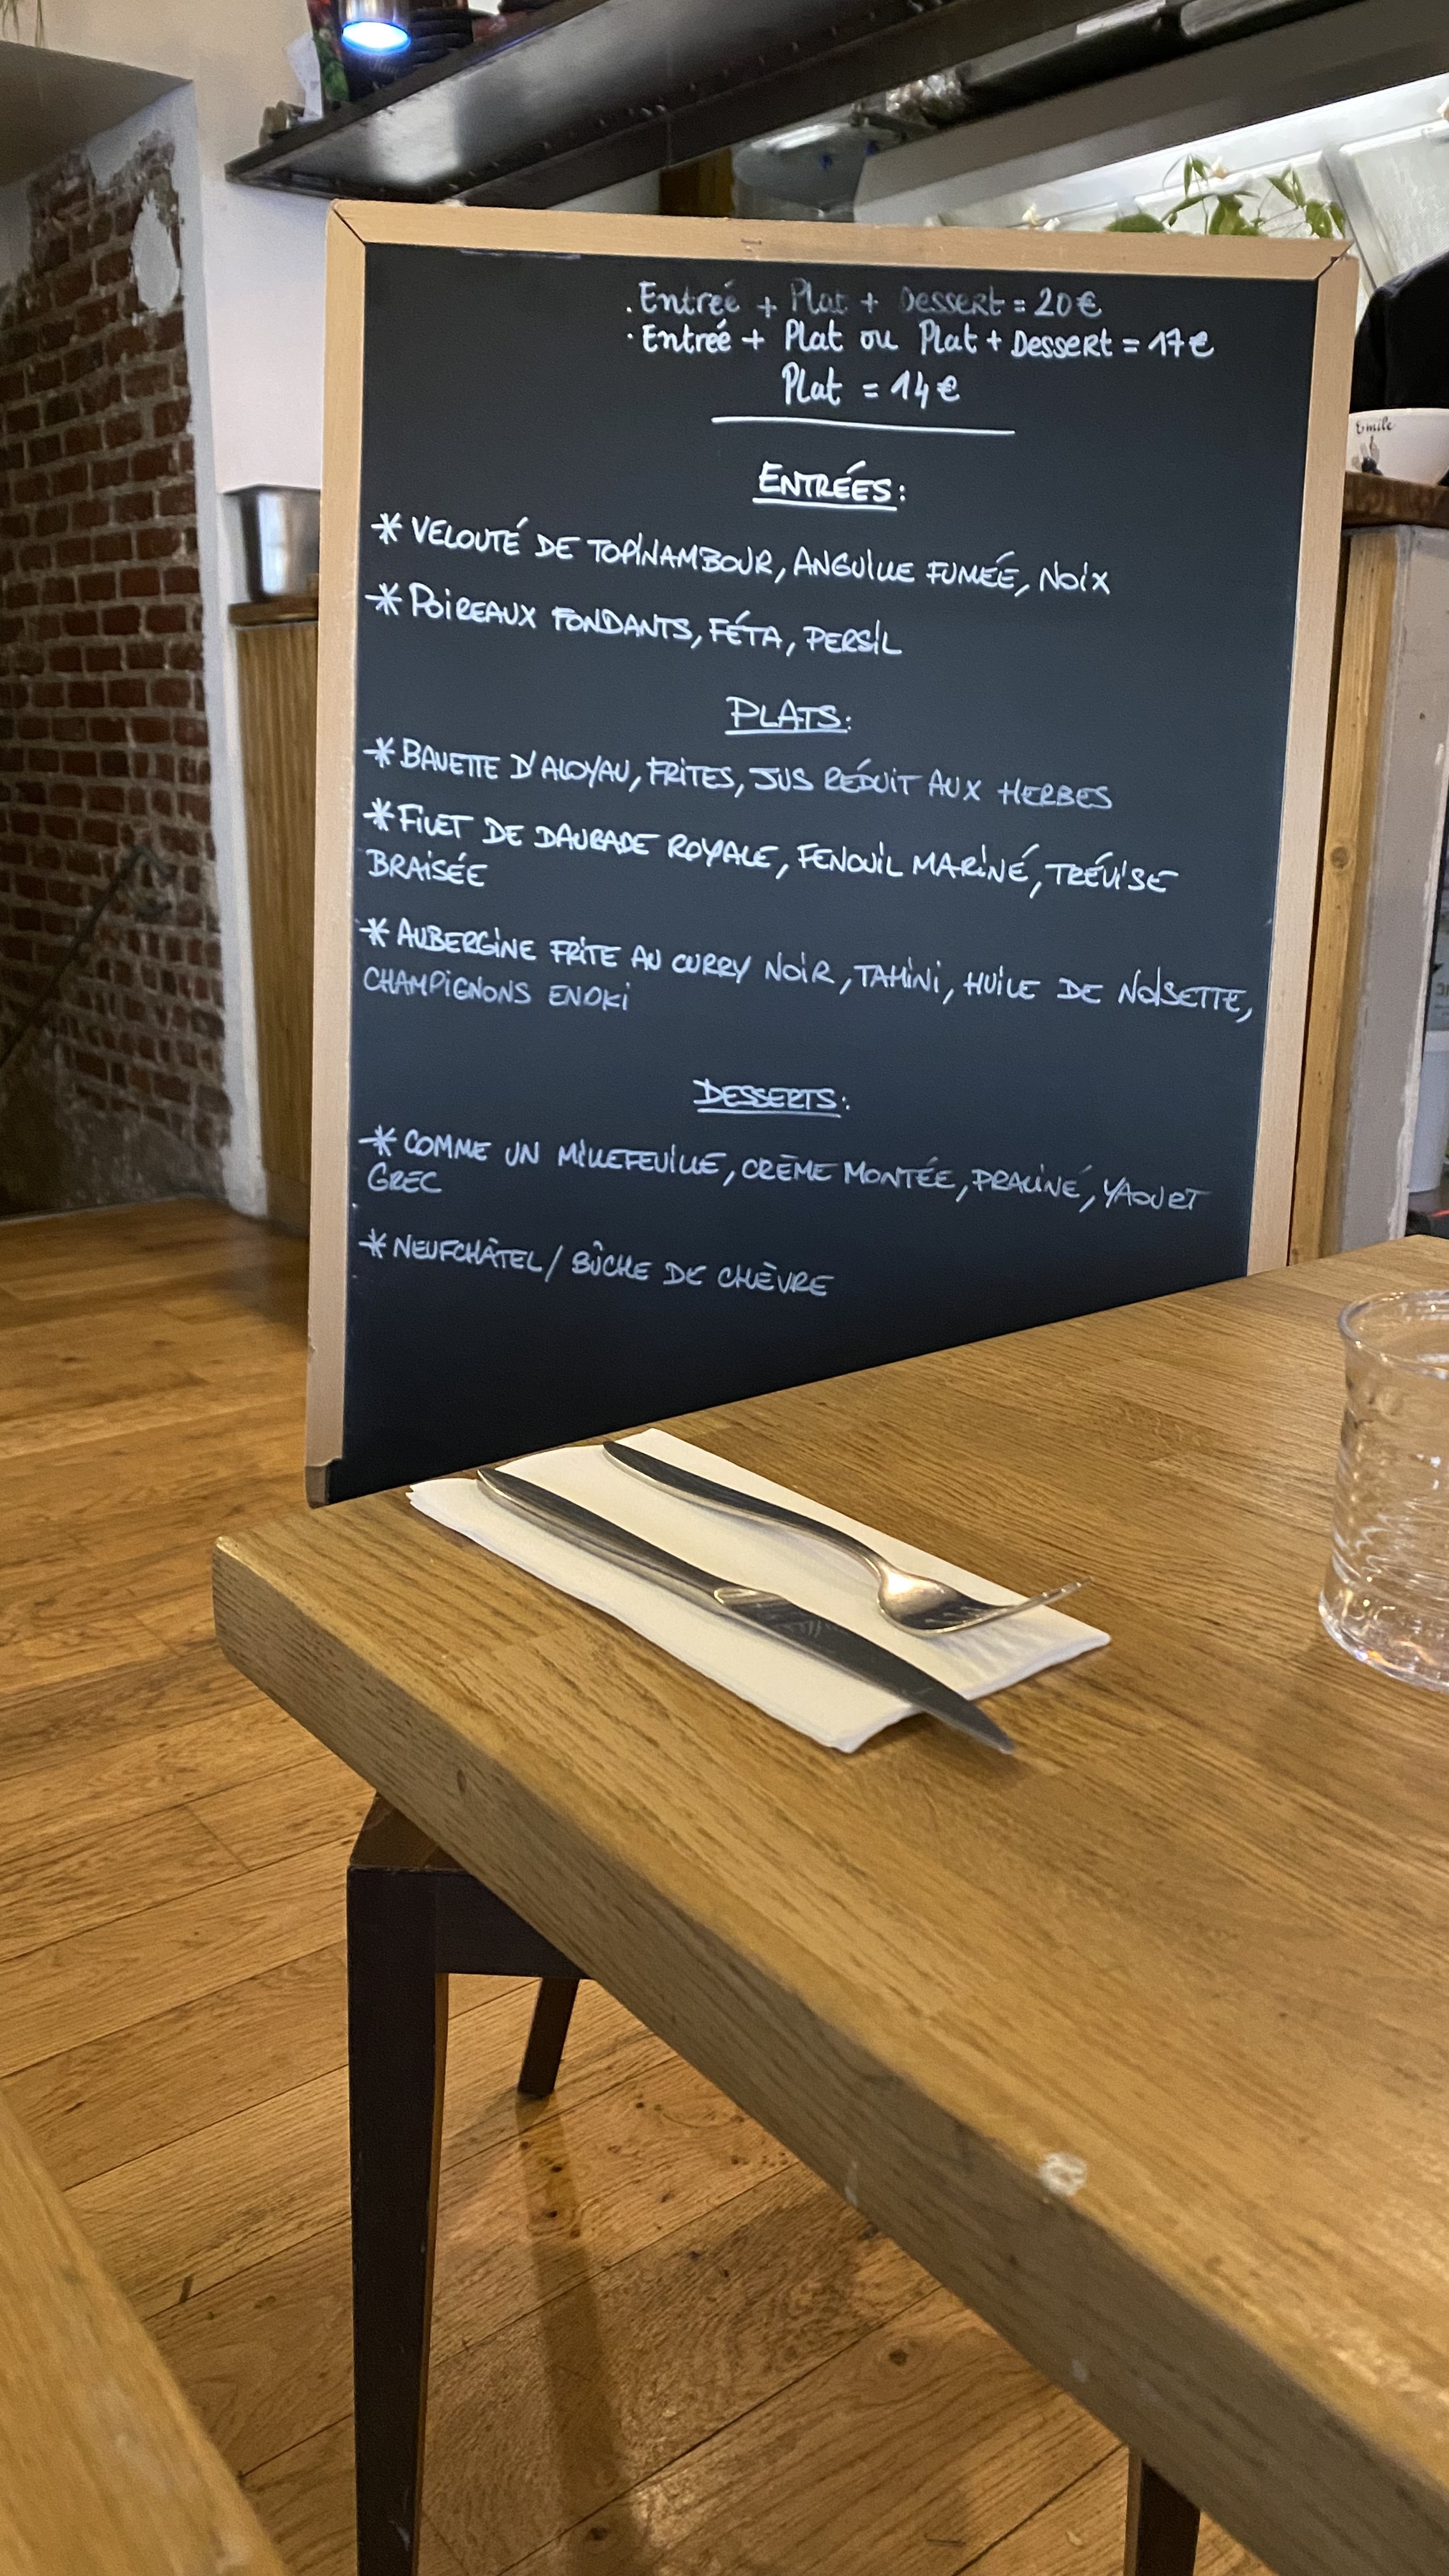 . Entreé + Plat + Dessert = 20€
. Entreé + Plat ou Plat + Dessert = 17€
Plat = 14€
ENTRÉES:
* VELOUTÉ DE TOPINAMBOUR, ANGUILLE FUMÉE, NOIX
* POIREAUX FONDANTS, FÉTA, PERSIL
PLATS:
* BAVETTE D'ALOYAU, FRITES, JUS RÉDUIT AUX HERBES
* FILET DE DAURADE ROYALE, FENOUIL MARINÉ, TRÉVISE
BRAISÉE
* AUBERGINE FRITE AU CURRY NOIR, TAHINI, HUILE DE NOISETTE,
CHAMPIGNONS ENOKI
DESSERTS:
* COMME UN MILLEFEUILLE, CRÈME MONTÉE, PRALINÉ, YAOURT
GREC
* NEUFCHÂTEL / BÛCHE DE CHÈVRE
Emile